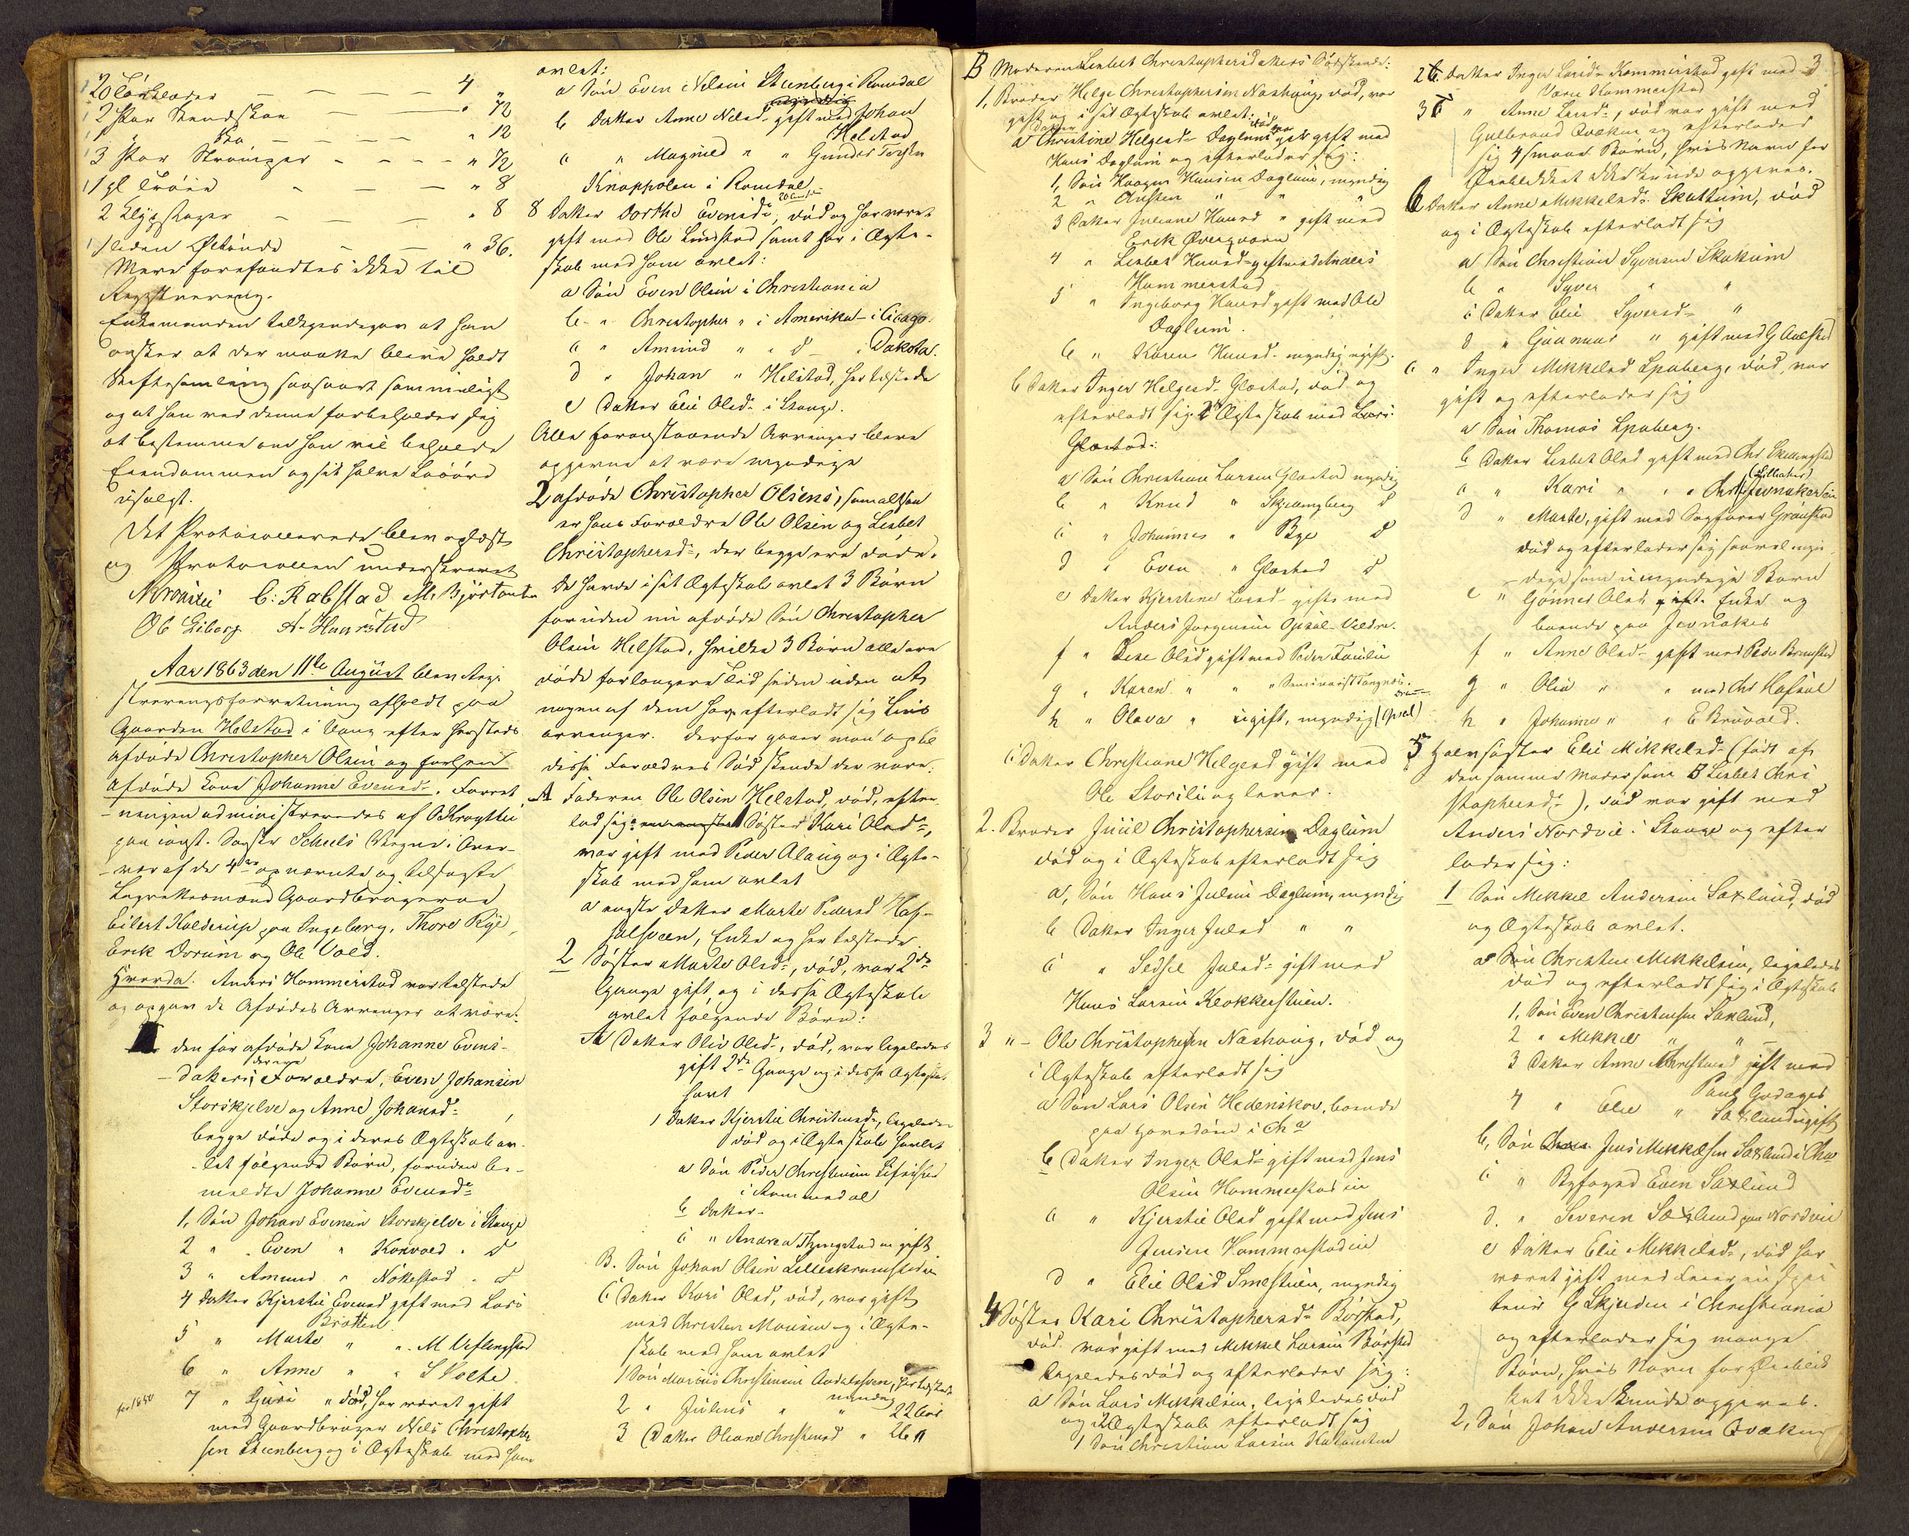 20 Tørklæder — — — — — 4 "
2 Par Skindskoe — — — — " 72
1 " Sko — — — — " 12
3 Par Strømper — — — — " 72
1 gl Trøie — — — " 8
2 — — — " 8
1 liden Øltønde — — " 36.
Mere forefandtes ikke til
Registrering.
Enkemanden tilkjendegav at han
ønsker at der maatte blive holdt
Skiftesamling saasnart som muligt
og at han ved denne forbeholder sig
at bestemme om han vil beholde
Eiendommen og sit halve Løsøre
usolgt.
Det Protocollerede blev oplæst
og Protocollen underskrevet
C: Rabstad M.
Ole Liberg A. Haarstad
Aar 1863 den 11te August blev Regi-
streringsforretning afholdt paa
Gaarden Helstad i Vang efter hersteds
afdøde Christopher Olsen og forhen
afdøde Kone Johanne Evensd. Forret-
ningen administreredes af O Krogttu
paa const. Sogfr Scheels Vegne i Over-
vær af de 4re opnævnte og tilsagte
Lagrettesmænd Gaardbrugerne
Eilert Kolderup paa Ingeberg, Thore Rye,
Erik Dorum og Ole Vold.
Hvorda. Anders Hommerstad var tilstede
og opgav de Afdødes Arvinger at være:
den før afdøde Kone Johanne Evens-
datters Forældre, Even Johansen
Storskjelve og Anne Johansd.
begge døde og i deres Ægteskab av-
let følgende Børn, foruden be-
meldte Johanne Evensd.
1, Søn Johan Evensen Storskjelve i Stange
2 " Even " Korvald " d
3 " Amund " Nøkestad " d
4 Datter Kjerstie Evensd gift med Lars
Bratten
5 " Marte " " M Uflingstad
6 " Anne " " S Holte
før 1850
7 " Guri " død, har været gift
med Gaardbruger Nils Christopher
sen Steenberg og i Ægteskab med ham
avlet:
a Søn Even Nilsen Steenberg i Romdal
b Datter Anne Nilsd- gift med Johan
Helstad
c " Magnild " " Gunder Torsen
Knappolen i Romdal
8 Datter Dorthe Evensdr, død og har været
gift med Ole Lundstad samt har i Ægte-
skab med ham avlet:
a Søn Even Olsen i Christiania
b " Christopher " i Amerika - i Cicago.
c " Amund " " d - i Dakota.
d " Johan " Helstad, her tilstede
e Datter Elie Olsd- i Stange.
Alle foranstaaende Arvinger bleve
opgivne at være myndige
2 afdøde Christopher Olsens, som altsaa
er hans Forældre Ole Olsen og Lisbet
Christophersd-, der begge ere døde.
De havde i sit Ægteskab avlet 3 Børn
foruden nu afdøde Søn Christopher
Olsen Helstad, hvilke 3 Børn alle ere
døde for længere Tid siden uden at
nogen af dem har efterladt sig Livs
arvinger. Derfor gaaer man op til
disse Forældres Sødskende der vare:
A Faderen Ole Olsen Helstad, død, efter-
lod sig: 1 Søster Kari Olsdr,
var gift med Peder Alaug og i Ægte-
skab med ham avlet
a eneste Datter Marte Pedersd Haf-
salsveen, Enke og her tilstede
2 Søster Marte Olsd-, død, var 2de
Gange gift, og i disse Ægteskab
avlet følgende Børn:
A Datter Oliv Olsd-, død, var ligeledes
gift 2de Gange og i disse Ægtesk.
havt
1 Datter Kjerstie Christensd-, ligeledes
død og i Ægteskab havlet
a Søn Peder Christensen
i Rommedal
b Datter-
c " Andrea Thyngstad ugift
B. Søn Johan Olsen Lilleskramstadeie
C Datter Kari Olsd, død, var gift
med Christen Monsen og i Ægte-
skab med ham avlet
1 Søn Marius Christensen Aadalssveen, her tilstede
myndig
2 " Julius " " 22 Aar
3 Datter Oleane Christensd " 26 "
B Moderen Lisbet Christophersdatters Sødskende:
1, Broder Helge Christophersen Nashoug, død, var
gift og i sit Ægteskab avlet:
a Datter Christine Helgesd- Daglum død var gift med
Hans Daglum og efterlader sig:
1, Søn Haagen Hansen Daglum, myndig
2 " Austen " " "
3 Datter Juliane Hansd " gift med
Erik Øvergaard
4 " Lisbet Hansd- gift med Anders
Hommerstad
5 " Ingeborg Hansd gift med Ole
Daglum.
6 " Karen Hansd- myndig ugift.
b Datter Inger Helgesd- Glæstad, død og
efterladt sig i Ægteskab med Lars
Glæstad:
a Søn Christian Larsen Glæstad myndig
b " Knud " Skjerengberg d
c " Johannes " Bye d
d " Even " Glæstad d
e Datter Kjerstine Larsd- gift med
Anders Jørgensen Opsal - Veldre.
f " Lise Olsd gift med Peder Faulie
g " Karen " " " Seminarist Tangnæs
h " Olava " ugift, myndig (Opsal)
c Datter Christiane Helgesd gift med
Ole Storlie og lever.
2. Broder Juul Christophersen Daglum
død og i Ægteskab efterladt sig
a, Søn Hans Julsen Daglum, myndig
b Datter Inger Julsd " "
c " Sedsel Julsd- gift med
Hans Larsen Klokkerstuen.
3 " Ole Christophersen Nashoug, død og
i Ægteskab efterladt sig
a Søn Lars Olsen Hedenskov, boende
paa Hovedøen i Cha
b Datter Inger Olsd- gift med Jens
Olsen Hommerstadeie
c " Kjerstie Olsd gift med Jens
Jensen Hommerstadeie
d " Elie Olsd Smestuen, myndig
4 Søster Kari Christophersd- Børstad,
død. var gift med Mikkel Larsen Børstad
ligeledes død og efterlader sig:
a Søn Lars Mikkelsen, ligeledes død
og i Ægteskab efterladt sig
1 Søn Christian Larsen
3
2 Datter Inger Larsd- Kommerstad gift med
Hommerstad
3 " Anne Larsd-, død var gift med
Gulbrand Qvæken og efterlader
sig 4 smaae Børn, hvis Navn for
Øieblikket ikke kunde opgives.
b Datter Anne Mikkelsd- Skattum, død
og i Ægteskab efterladt sig
a Søn Christian Syversen Skattum
b " Syver " "
c Datter Elie Syversd- "
d " Gunnor " gift med G Aulstad
c " Inger Mikkelsd Spaberg, død, var
gift og efterlader sig
a Søn Thomas Spaberg.
b Datter Lisbet Olsd gift med Chr. Skarrengstad
c " Kari " " " Chr. Jevnakereie
d " Marte, gift med Sagfører Granstad
død og efterlader sig saavel myn-
dige som umyndige Børn
e " Gunner Olsd gift. Enke og
boende paa Jevnaker
f " Anne Olsd- gift med Peder
g " Olia " " med Chr Hafsal
h " Johanna " " E Bruvold.
5 Halvsøster Elie Mikkelsd- (født af
den samme Moder som B Lisbet Chri
stophersd-), død var gift med
Anders Nordvie i Stange og efter
lader sig:
1 Søn Mikkel Andersen Saxlund, død
og Ægteskab avlet.
a Søn Christen Mikkelsen, ligeledes
død og efterladt sig i Ægteskab
1, Søn Even Christensen Saxlund,
2 " Mikkel " "
3 Datter Anne Christensd gift med
Paul Godager
4 " Elie " Saxlund ugift
b, Søn Jens Mikkelsen Saxlund i Cha
c " Byfoged Even Saxlund
d. " Severin Saxlund paa Nordvie
e Datter Elie Mikkelsd-, død har
været gift med
G Skjuden i Christiania
og efterlader sig mange
Børn, hvis Navn for Øieblik
ket ikke kunde opgives.
2, Søn Johan Andersen Qvæken